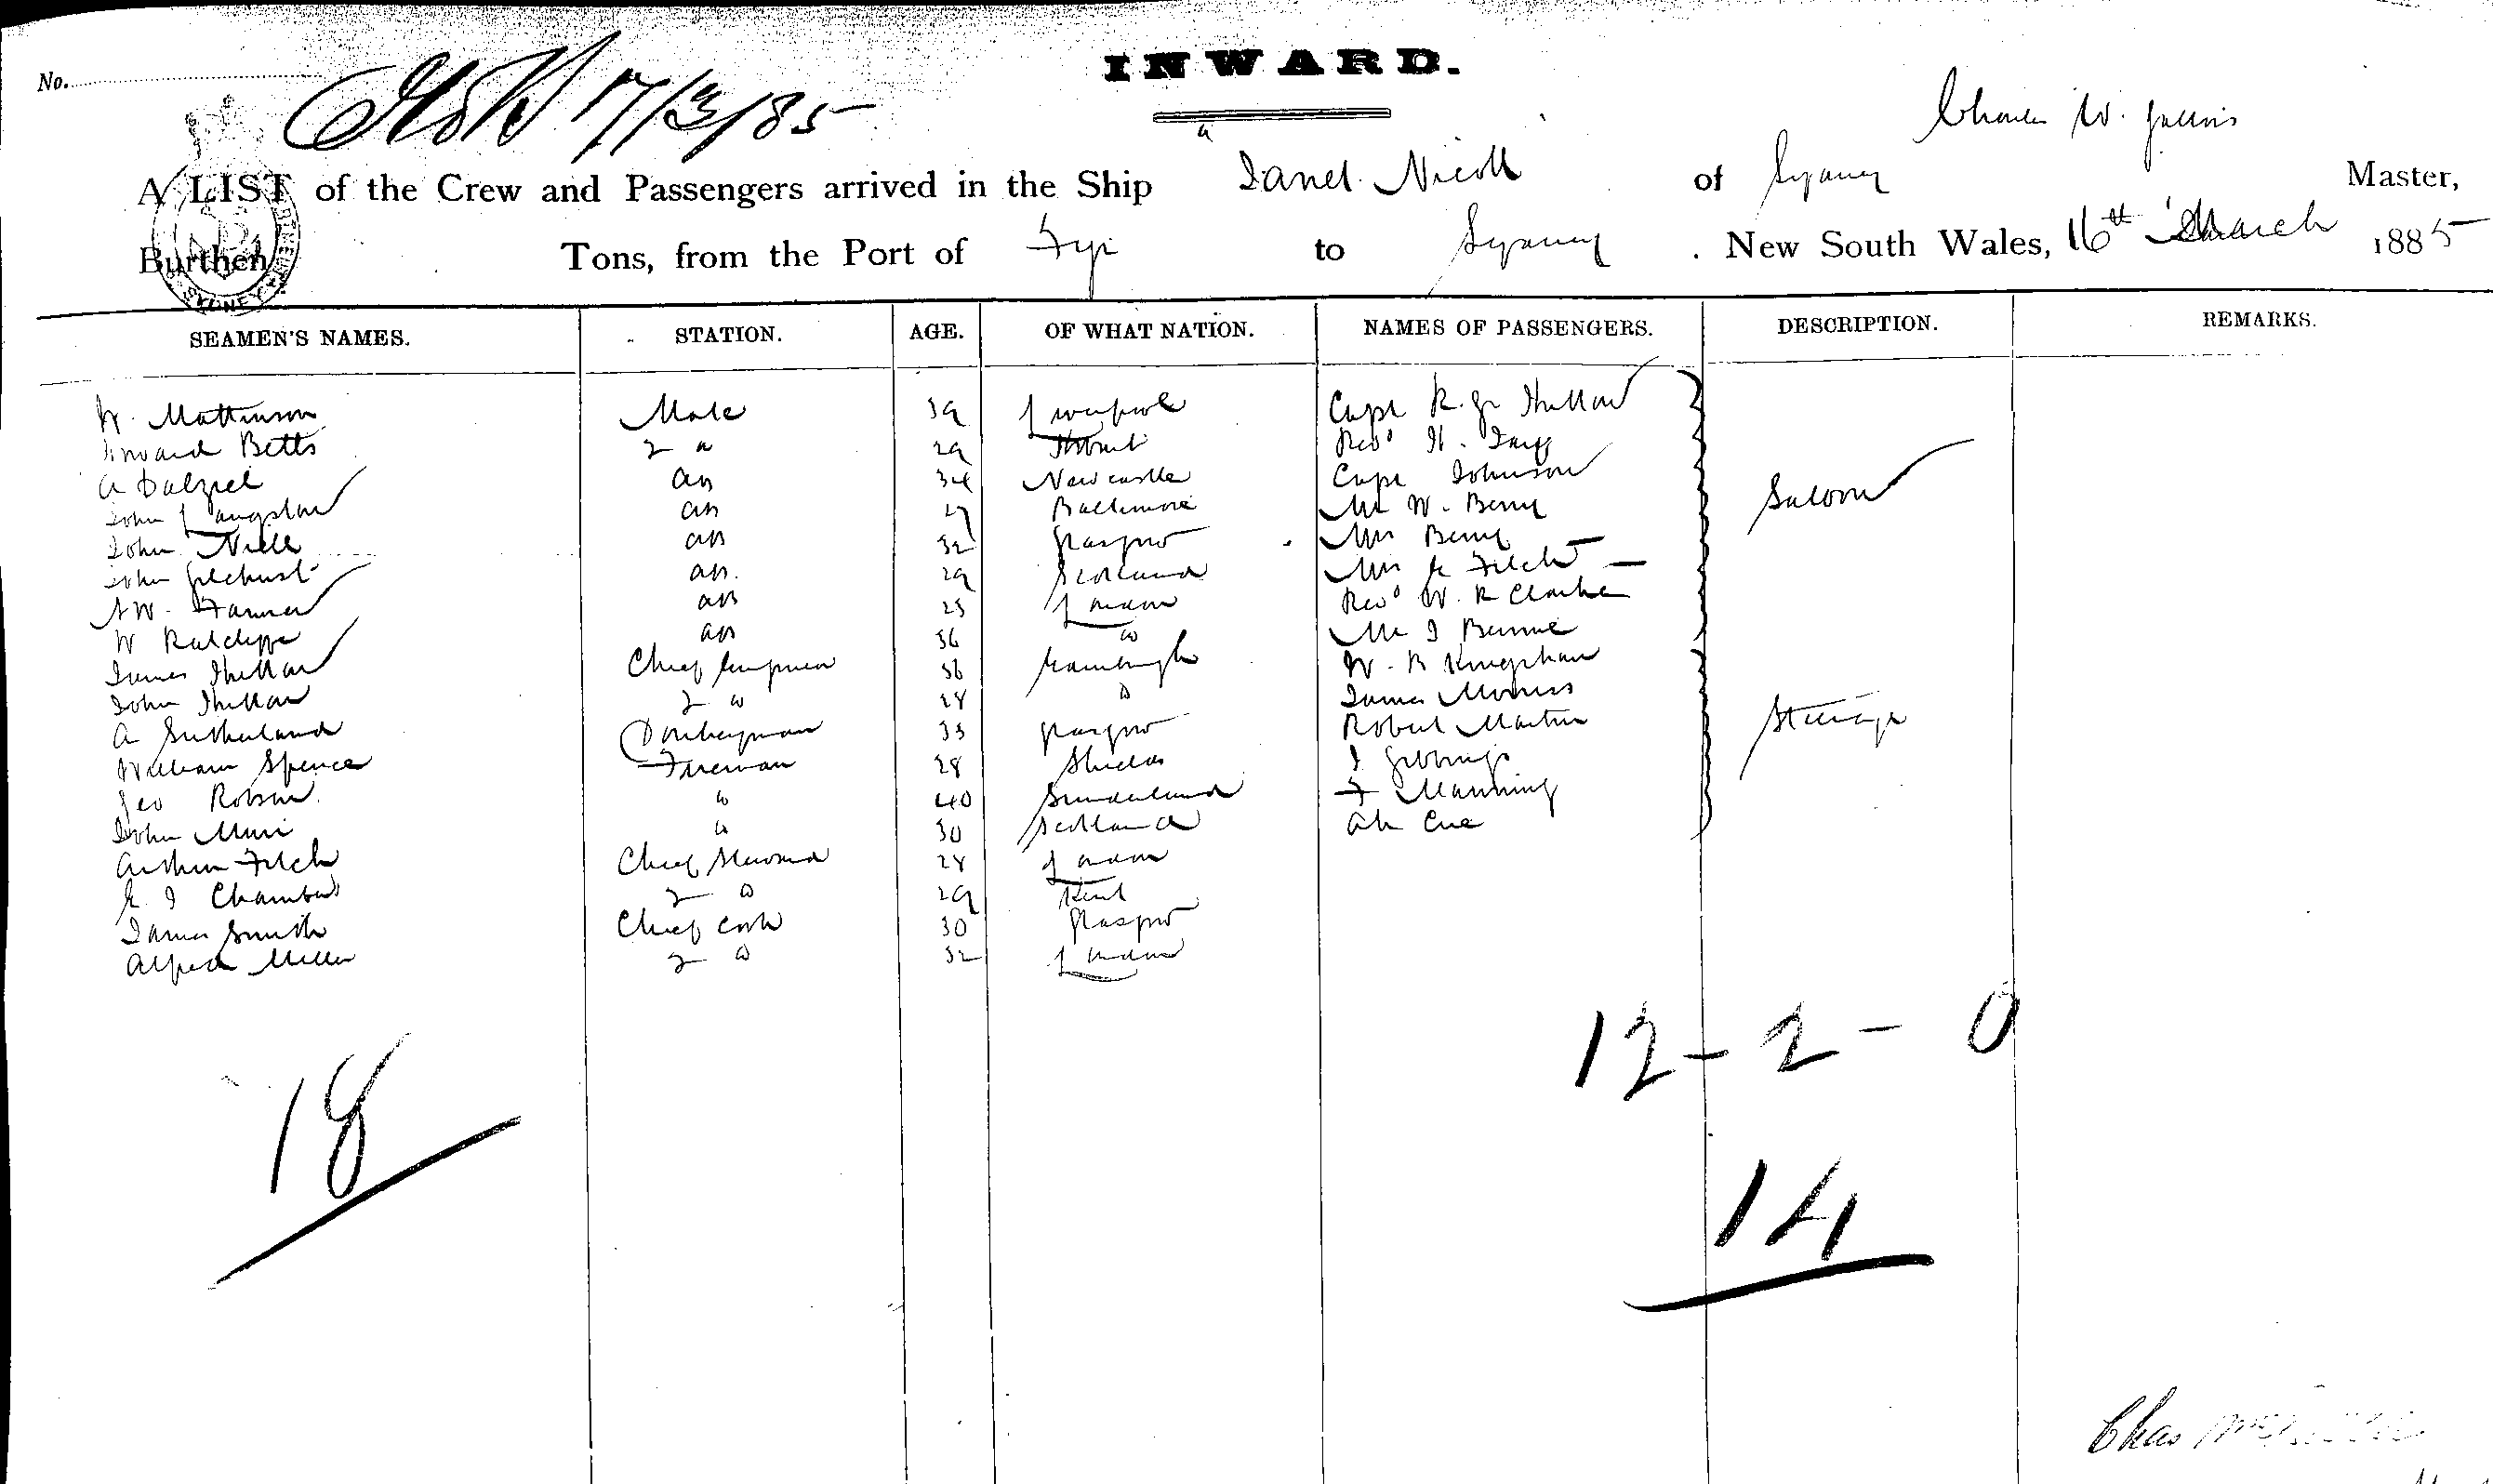 INWARD.
No.
17/3/85
Charles W.
A LIST of the Crew and Passengers arrived in the Ship "Janet Nicoll of Sydney Master,
Burthen Tons, from the Port of Fiji to Sydney . New South Wales, 16th March 1885
SEAMEN'S NAMES. STATION. AGE. OF WHAT NATION. NAMES OF PASSENGERS. DESCRIPTION. REMARKS.
W. Mattinson Mate 39 Liverpool Capt R.
Edward Betts 2 " 29 Hobart Revd
A Dalziel AB 34 Newcastle Capt Johnson
John Langston AB 27 Baltimore Mr W. Berry Saloon
John Niell AB 32 Glasgow Mrs Berry
John Gilchrist AB. 29 Scotland Mrs A Fitch
W. Farmer AB 25 London Revd W. R Clarke
W Ratcliffe AB 36 " Mr J
James Chief Engineer 36 Edinburgh W. B Kingsham
John 2 " 28 " James Morriss
A Sutherland Donkeyman 35 Glasgow Robert Martin Steerage
William Spence Fireman 28 Shields J Gibbings
Geo Robson. " 40 Sunderland F Manning
John Muir " 30 Scotland Ah Cue
Arthur Fitch Chief Steward 28 London
E. J Chambers 2 " 29 Kent
James Smith Chief Cook 30 Glasgow
Alfred Miller 2 " 32 London
12 - 2 - 0
18
14
Chas